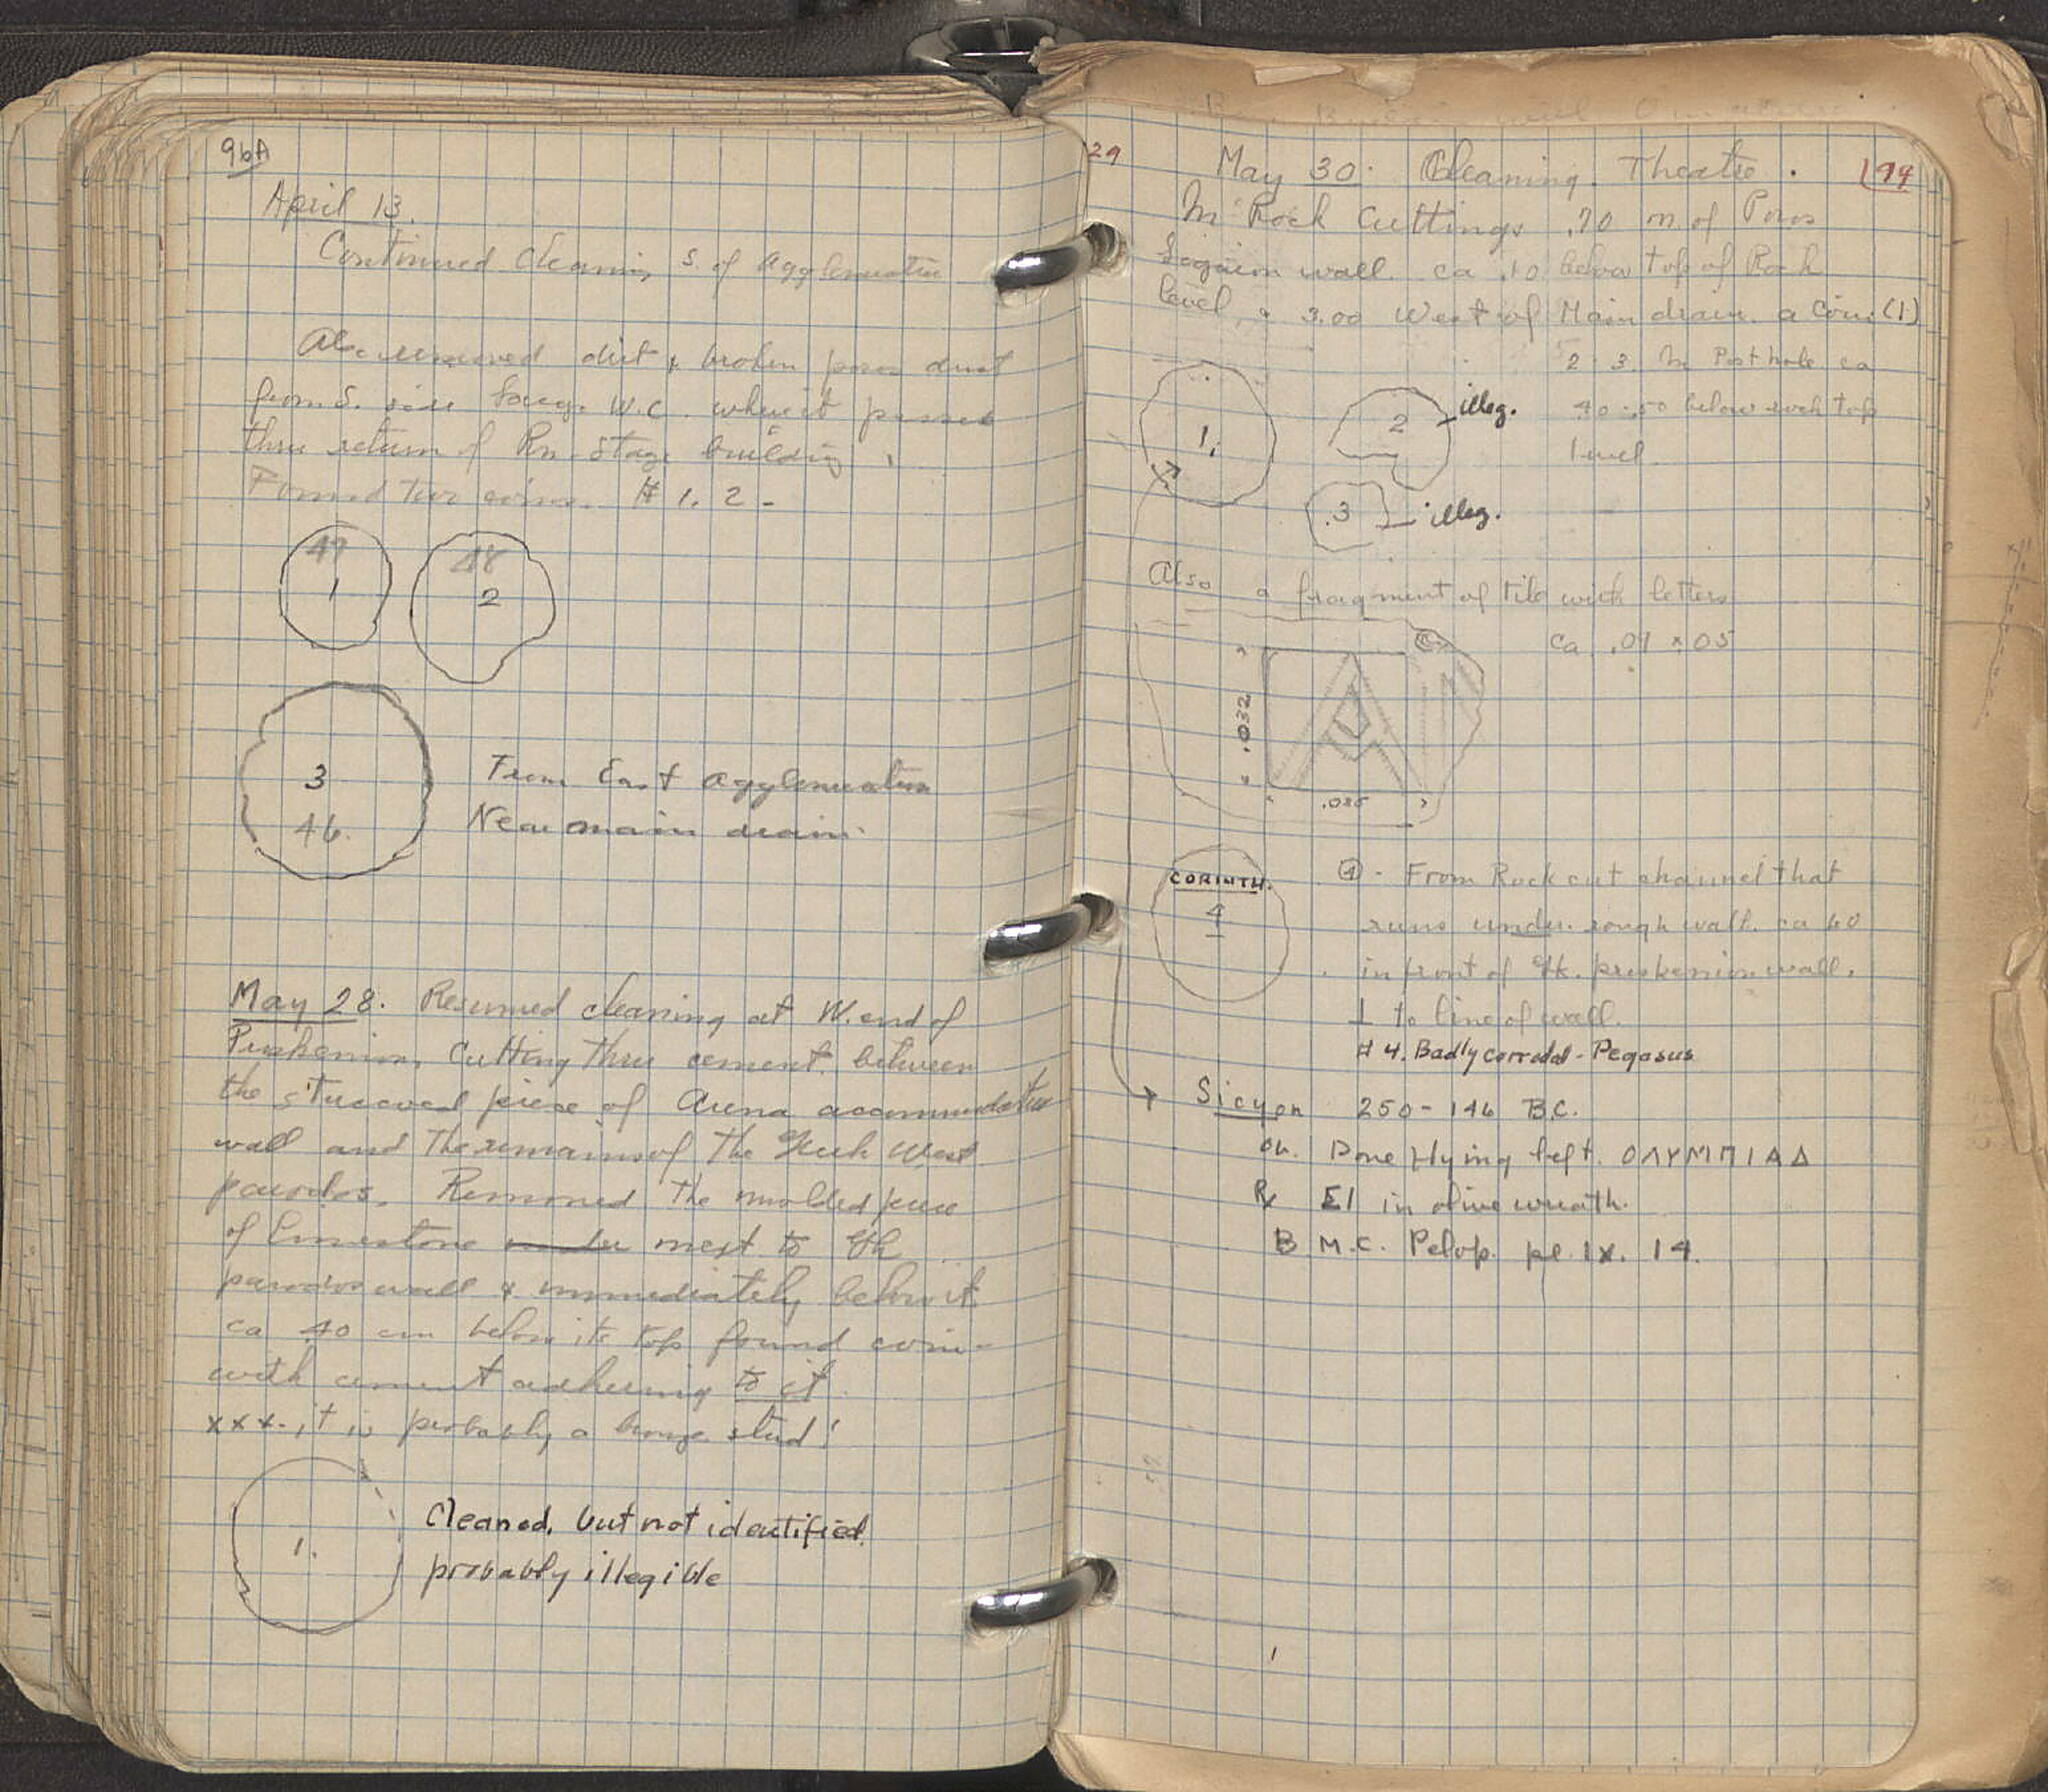 96A
April 13.
Continued Cleaning S. of Agglomeration
Also removed dirt & broken poros dust
from S. side W.C. where it passes
thru return of Rm Stage building.
Found two coins. # 1, 2 -
47
1
48
2
3
46.
From East Agglomeration
Near main drain.
May 28. Resumed cleaning at W. end of
Proskenion, Cutting thru cement between
the stuccoed piece of Arena accommodation
wall and the remains of the Greek West
parodos. Removed the molded piece
of limestone next to Gk
parodos wall & immediately below it
ca .40 cm below its top found coin -
with cement adhering to it.
xxx - it is probably a bronze stud!
1.
Cleaned, but not identified,
probably illegible
29
May 30. Cleaning Theatre.
194
In Rock Cuttings .70 m. of Poros
wall. ca .10 below top of Rock
level, & 3.00 West of Main drain a Coin (1)
2 - 3. In Post hole ca
40-.50 below rock top
level
1.
2
illeg.
.3
illeg.
Also a fragment of tile with letters
ca .07 x 05
.032
CORINTH.
4
④ - From Rock cut channel that
runs under rough wall. ca 60
in front of Gk. proskenion wall.
⊥ to line of wall.
# 4. Badly corroded - Pegasus
Sicyon 250 - 146 B.C.
Ob. Dove flying left. ΟΛΥΜΠΙΑΔ
Rx ΣΙ in olive wreath.
B M.C. Pelop. pl. IX. 14.